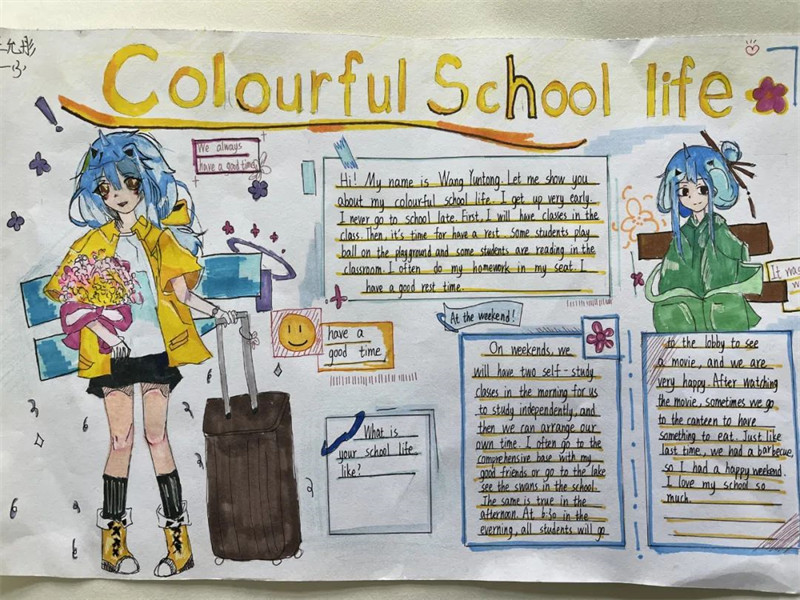 Colourful School life
We always
have a good time.
Hi! My name is Wang Yuntong. Let me show you
about my colourful school life. I get up very early.
I never go to school late. First, I will have classes in the
class. Then it's time for have a rest. Some students play
ball on the playground and some students are reading in the
classroom. I often do my homework in my seat. I
have a good rest time.
It was
have a
good time
What is
your school life
like?
At the weekend!
On weekends, we
will have two self-study
classes in the morning for us
to study independently, and
then we can arrange our
own time. I often go to the
comprehensive base with my
good friends or go to the lake
see the swans in the school.
The same is true in the
afternoon. At 6:30 in the
everning, all students will go
to the lobby to see
a movie, and we are
very happy. After watching
the movie, sometimes we go
to the canteen to have
something to eat. Just like
last time, we had a barbecue,
so I had a happy weekend.
I love my school so
much.